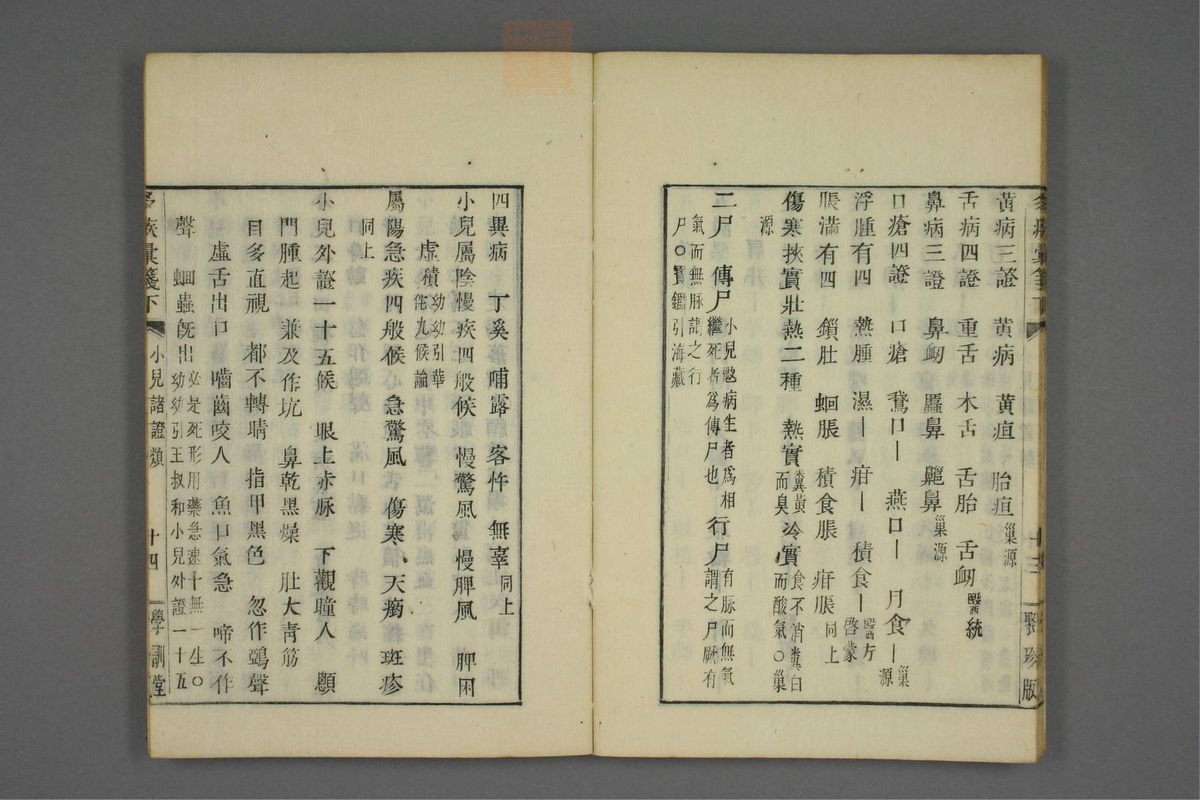 黃病三證　黃病　黃疸　胎疸巢源
舌病四證　重舌　木舌　舌胎　舌衂醫統
鼻病三證　鼻衂　齆鼻　齇鼻巢源
口瘡四證　口瘡　鵞口｜　燕口｜　月食｜巢源
浮腫有四　熱腫　濕｜　疳｜　積食｜醫方啓蒙
脹滿有四　鎖肚　蛔脹　積食脹　疳脹同上
傷寒挾實壯熱二種　熱實糞黃而臭冷實食不消糞白而酸氣〇巢
源
二尸　傳尸小兒㱦病生者爲相繼死者爲傳尸也行尸有脉而無氣謂之尸厥有
氣而無脉謂之行尸〇寶鑑引海藏
彙箋下　十三　聚珍版
四異病　丁奚　哺露　客忤　無辜同上
小兒屬陰慢疾四般候　慢驚風　慢脾風　脾困
虛積幼幼引華佗九候論
屬陽急疾四般候　急驚風　傷寒　天瘹　斑疹
同上
小兒外證一十五候　眼上赤脉　下觀瞳人　顖
門腫起　兼及作坑　鼻乾黑燥　肚大靑筋
目多直視　都不轉睛　指甲黑色　忽作鵶聲
虛舌出口　嚙齒咬人　魚口氣急　啼不作
聲　蛔蟲旣出必是死形用藥急速十無一生〇幼幼引王叔和小兒外證一十五
彙箋下　小兒諸證類　十四　學訓堂